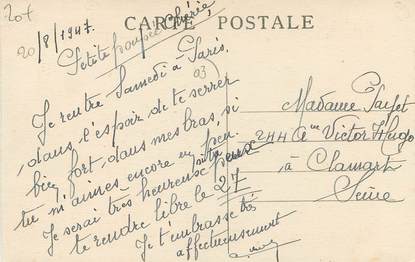 20f
CARTE POSTALE
20/8/1947.
Petite poupée chérie,
Je rentre Samedi à Paris.
dans l'espoir de te serrer
bien fort, dans mes bras, si
tu m'aimes encore un peu
Je serai très heureuse si tu peux
te rendre libre le 27
Je t'embrasse très
affectueusement
Madame
244 Av Victor Hugo
à Clamart
Seine